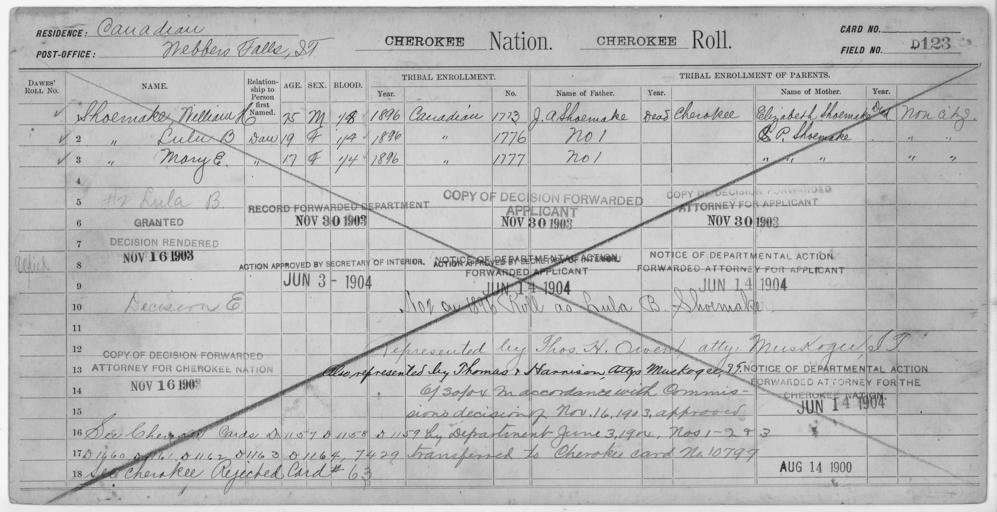 RESIDENCE: Canadian
POST-OFFICE: Webbers Falls, IT
CHEROKEE Nation. CHEROKEE Roll.
CARD NO.
FIELD NO. D123
DAWES' ROLL NO.
NAME.
Relationship to Person first Named.
AGE. SEX. BLOOD.
TRIBAL ENROLLMENT.
Year. County. No.
TRIBAL ENROLLMENT OF PARENTS.
Name of Father. Year. Name of Mother. Year.
1 Shoemake, William 25 M 1/8 1896 Canadian 1773 J. A Shoemake Dead Cherokee Elizabeth Shoemake Ded Non citz.
2 " Lulu B Dau 19 F 1/4 1896 " 1776 No 1 S. P. Shoemake " "
3 " Mary E. " 17 F 1/4 1896 " 1777 No 1 " " " " "
4
5 #2 Lula B.
6 GRANTED
RECORD FORWARDED DEPARTMENT
NOV 30 1903
COPY OF DECISION FORWARDED
APPLICANT
NOV 30 1903
COPY OF DECISION FORWARDED
ATTORNEY FOR APPLICANT
NOV 30 1903
7 DECISION RENDERED
NOV 16 1903
8
ACTION APPROVED BY SECRETARY OF INTERIOR.
JUN 3 - 1904
NOTICE OF DEPARTMENTAL ACTION
ACTION APPROVED BY SECRETARY OF INTERIOR.
FORWARDED APPLICANT
JUN 14 1904
NOTICE OF DEPARTMENTAL ACTION
FORWARDED ATTORNEY FOR APPLICANT
JUN 14 1904
9
10 Decision E Not on 1896 Roll as Lula B. Shoemake.
11
12 Represented by Thos. H. Owen atty. Muskogee, I T
COPY OF DECISION FORWARDED
ATTORNEY FOR CHEROKEE NATION
NOV 16 1903
13 Also, represented by Thomas & Harrison, Attys Muskogee,
NOTICE OF DEPARTMENTAL ACTION
FORWARDED ATTORNEY FOR THE
CHEROKEE NATION.
JUN 14 1904
14 In accordance with Commis-
15 sions decision of Nov. 16, 1903, approved
16 See Cherokee Cards D 1157 D 1158 D 1159 by Department June 3, 1904, Nos 1-2 & 3
17 D 1160 D 1161 D 1162 D 1163 D 1164 7429 transferred to Cherokee card No. 10799
18 See Cherokee Rejected Card # 63
AUG 14 1900